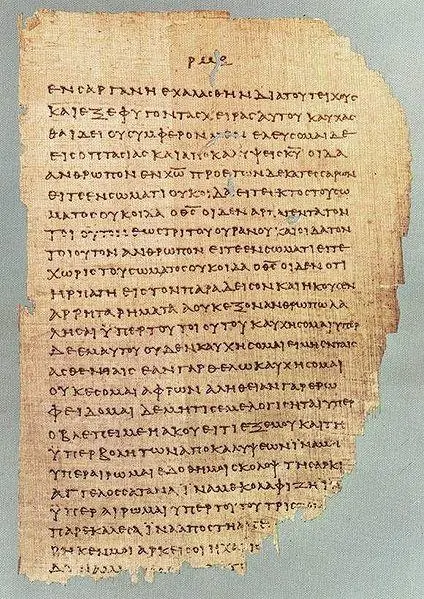 ΕΝ ΣΑΡΓΑΝΗ ΕΧΑΛΑΣΘΗΝ ΔΙΑ ΤΟΥ ΤΕΙΧΟΥΣ
ΚΑΙ ΕΞΕΦΥΓΟΝ ΤΑΣ ΧΕΙΡΑΣ ΑΥΤΟΥ ΚΑΥΧΑΣ
ΘΑΙ ΔΕΙ ΟΥ ΣΥΜΦΕΡΟΝ ΜΕΝ ΕΛΕΥΣΟΜΑΙ ΔΕ
ΕΙΣ ΟΠΤΑΣΙΑΣ ΚΑΙ ΑΠΟΚΑΛΥΨΕΙΣ ΚΥ ΟΙΔΑ
ΑΝΘΡΩΠΟΝ ΕΝ ΧΩ ΠΡΟ ΕΤΩΝ ΔΕΚΑΤΕΣΣΑΡΩΝ
ΕΙΤΕ ΕΝ ΣΩΜΑΤΙ ΟΥΚ ΟΙΔΑ ΕΙΤΕ ΕΚΤΟΣ ΤΟΥ ΣΩ
ΜΑΤΟΣ ΟΥΚ ΟΙΔΑ Ο ΘΣ ΟΙΔΕΝ ΑΡΠΑΓΕΝΤΑ ΤΟΝ
ΤΟΙΟΥΤΟΝ ΕΩΣ ΤΡΙΤΟΥ ΟΥΡΑΝΟΥ ΚΑΙ ΟΙΔΑ ΤΟΝ
ΤΟΙΟΥΤΟΝ ΑΝΘΡΩΠΟΝ ΕΙΤΕ ΕΝ ΣΩΜΑΤΙ ΕΙΤΕ
ΧΩΡΙΣ ΤΟΥ ΣΩΜΑΤΟΣ ΟΥΚ ΟΙΔΑ Ο ΘΣ ΟΙΔΕΝ ΟΤΙ
ΗΡΠΑΓΗ ΕΙΣ ΤΟΝ ΠΑΡΑΔΕΙΣΟΝ ΚΑΙ ΗΚΟΥΣΕΝ
ΑΡΡΗΤΑ ΡΗΜΑΤΑ Α ΟΥΚ ΕΞΟΝ ΑΝΘΡΩΠΩ ΛΑ
ΛΗΣΑΙ ΥΠΕΡ ΤΟΥ ΤΟΙΟΥΤΟΥ ΚΑΥΧΗΣΟΜΑΙ ΥΠΕΡ
ΔΕ ΕΜΑΥΤΟΥ ΟΥΔΕΝ ΚΑΥΧΗΣΟΜΑΙ ΕΙ ΜΗ ΕΝ ΤΑΙΣ
ΑΣΘΕΝΕΙΑΙΣ ΕΑΝ ΓΑΡ ΘΕΛΩ ΚΑΥΧΗΣΟΜΑΙ
ΟΥΚ ΕΣΟΜΑΙ ΑΦΡΩΝ ΑΛΗΘΕΙΑΝ ΓΑΡ ΕΡΩ
ΦΕΙΔΟΜΑΙ ΔΕ ΜΗ ΤΙΣ ΕΜΕ ΛΟΓΙΣΗΤΑΙ ΥΠΕΡ
Ο ΒΛΕΠΕΙ ΜΕ Η ΑΚΟΥΕΙ ΤΙ ΕΞ ΕΜΟΥ ΚΑΙ ΤΗ
ΥΠΕΡΒΟΛΗ ΤΩΝ ΑΠΟΚΑΛΥΨΕΩΝ ΙΝΑ ΜΗ
ΥΠΕΡΑΙΡΩΜΑΙ ΕΔΟΘΗ ΜΟΙ ΣΚΟΛΟΨ ΤΗ ΣΑΡΚΙ
ΑΓΓΕΛΟΣ ΣΑΤΑΝΑ ΙΝΑ ΜΕ ΚΟΛΑΦΙΖΗ
ΥΠΕΡΑΙΡΩΜΑΙ ΥΠΕΡ ΤΟΥΤΟΥ ΤΡΙΣ
ΠΑΡΕΚΑΛΕΣΑ ΙΝΑ ΑΠΟΣΤΗ
ΡΗΚΕΝ ΜΟΙ ΑΡΚΕΙ ΣΟΙ Η ΧΑΡΙΣ